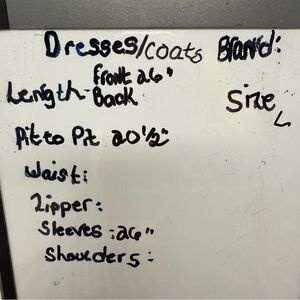 Dresses/coats Brand:
front 26"
Length - Back
Size L
Pit to Pit 20 1/2"
Waist:
Zipper:
Sleeves: 26"
Shoulders: